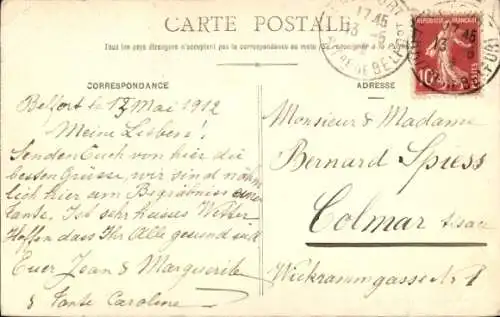 CARTE POSTALE
Tous les pays étrangers n'acceptent pas la correspondance au recto (se renseigner à la Poste)
CORRESPONDANCE
ADRESSE
Belfort le 13 Mai 1912
Meine Lieben!
Senden Euch von hier die
besten Grüsse, wir sind näm
lich hier am Begräbniss einer
Tante. Ist sehr heisses Wetter
Hoffen dass Ihr Alle gesund seid
Euer Jean & Marguerite
& Tante Caroline
Monsieur & Madame
Bernard Spiess
Colmar Elsass
Wickrammgasse Nr 1
REPUBLIQUE FRANÇAISE
10
POSTES
17 45
13 - 5
BELFORT
17 45
13 5
BELFORT